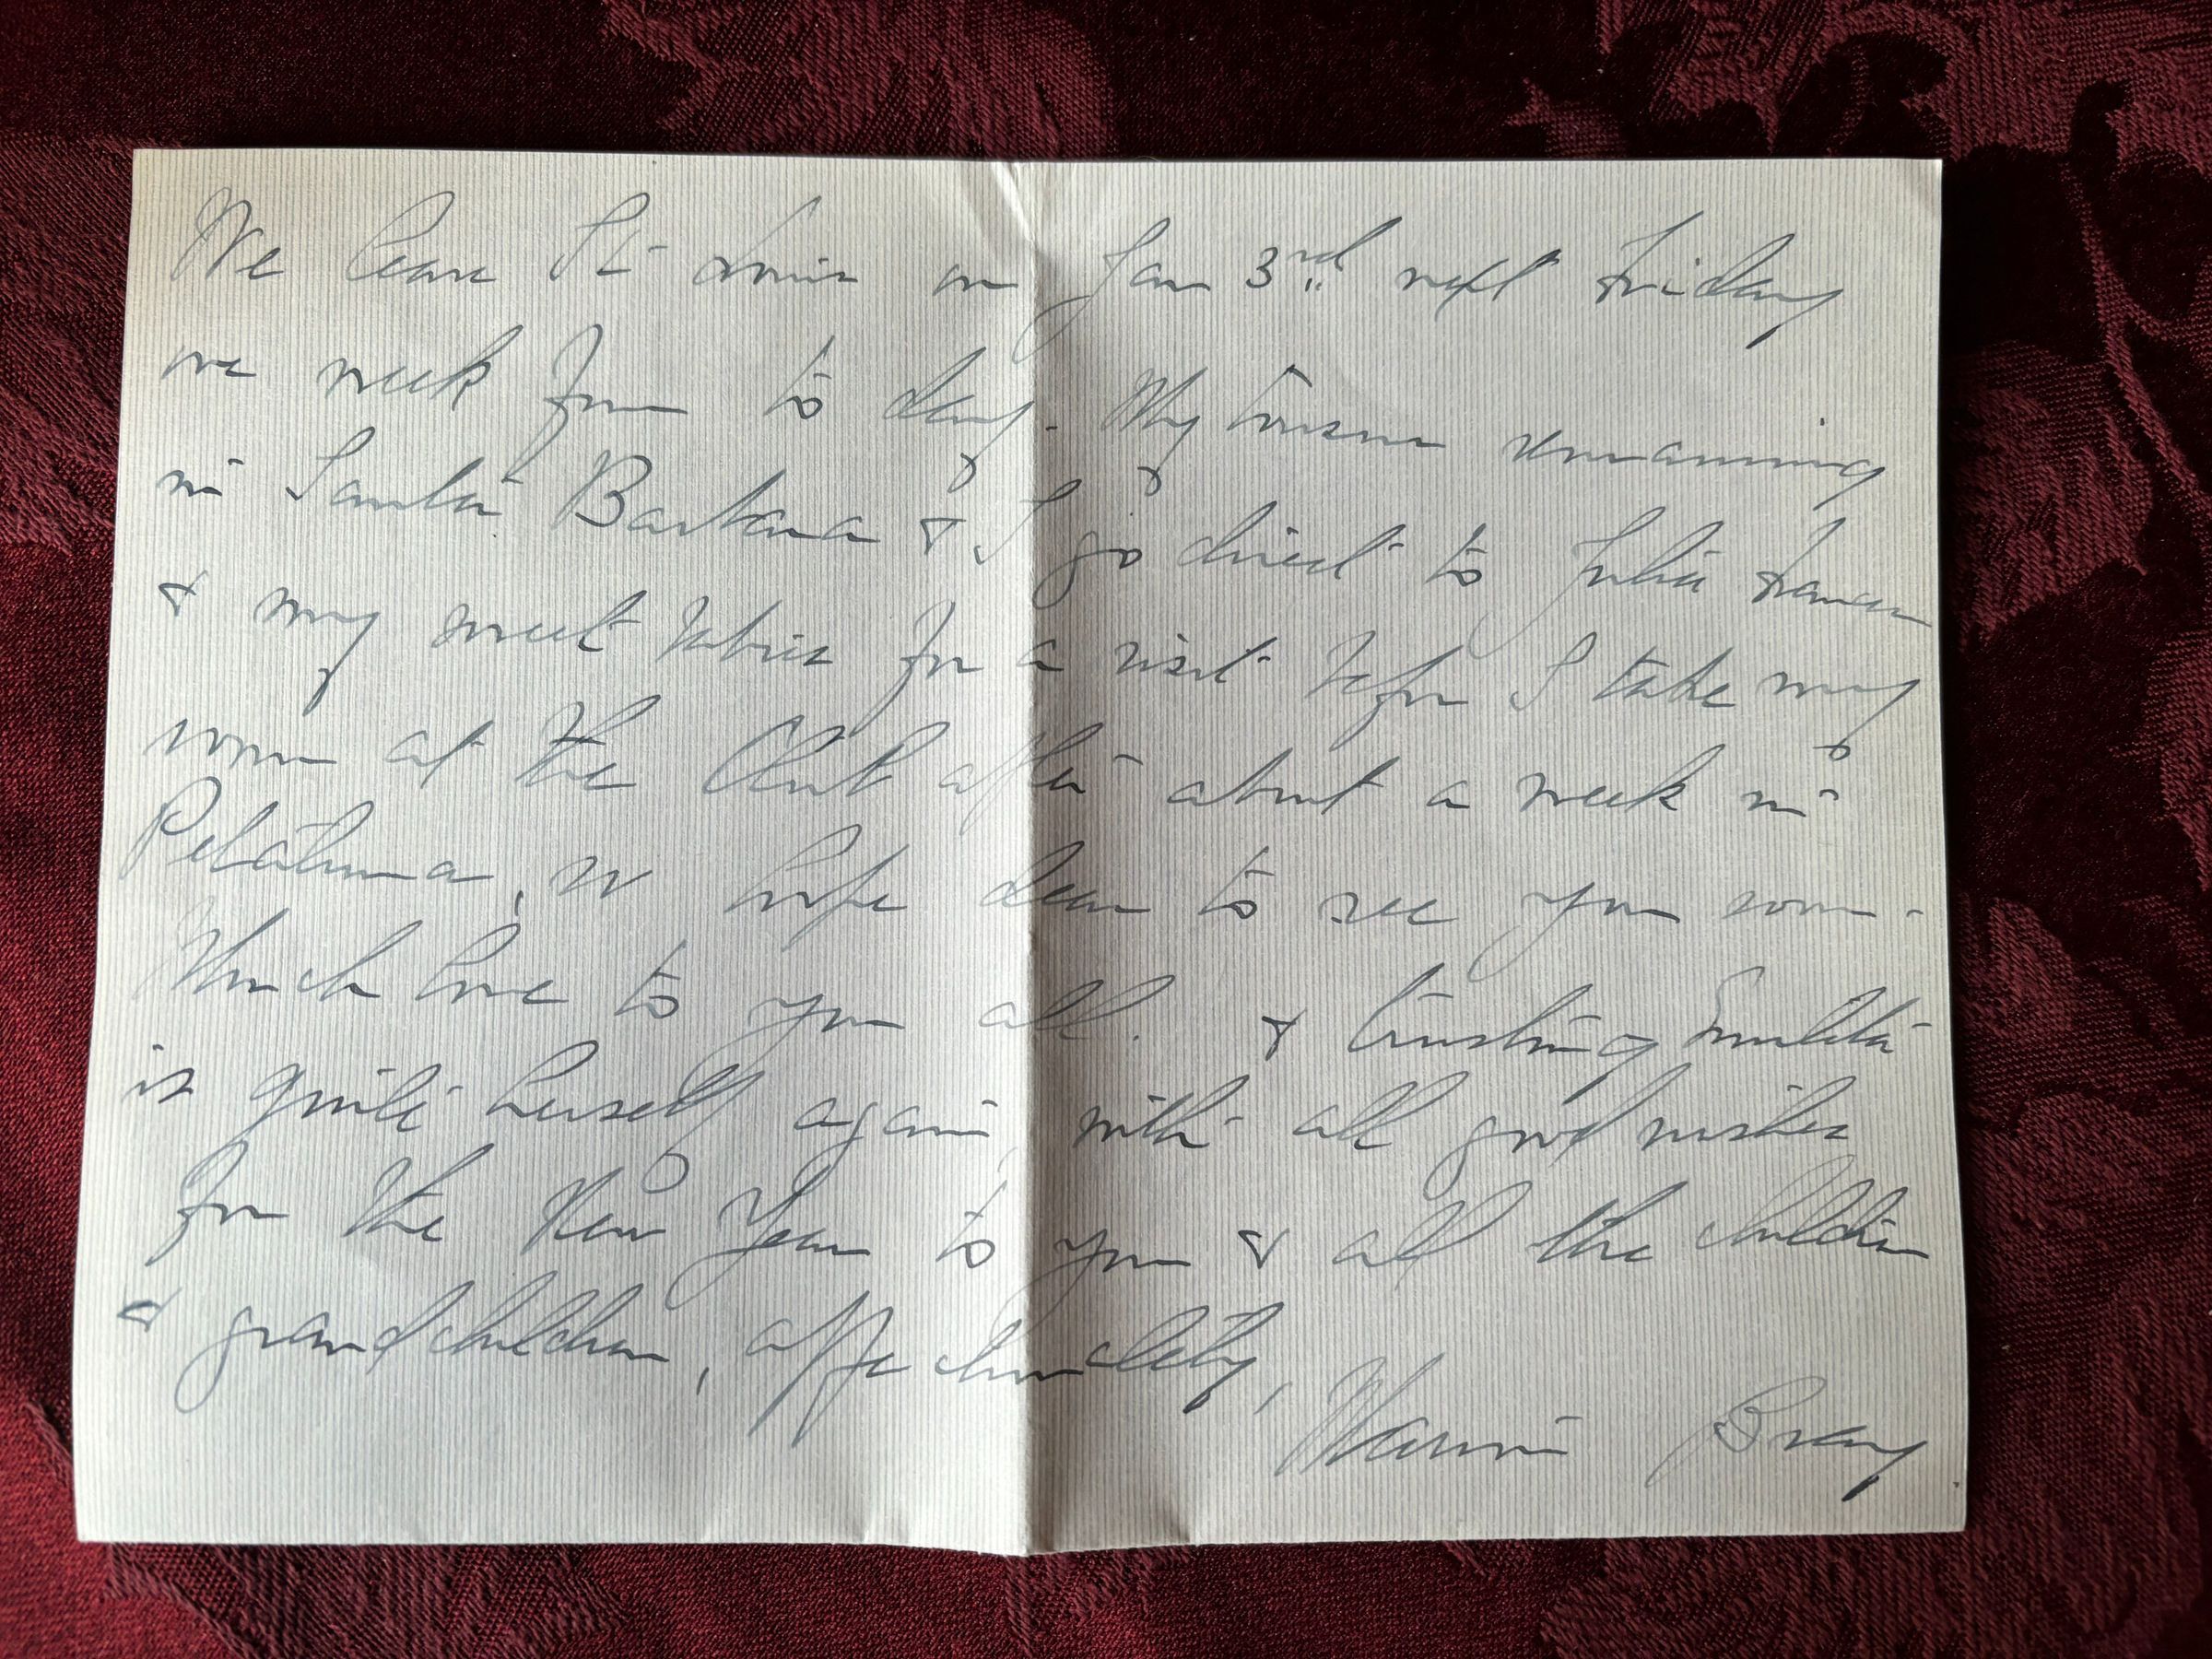 We leave St Louis on Jan 3rd next Friday
one week from to day. My cousin remaining
in Santa Barbara & I go direct to Julia Frances
& my sweet babies for a visit before I take my
room at the Club after about a week in
Petaluma, so hope dear to see you soon.
Much love to you all. & trusting
is quite herself again, with all good wishes
for the New Year to you & all the children
& grandchildren, affectionately,
Bray